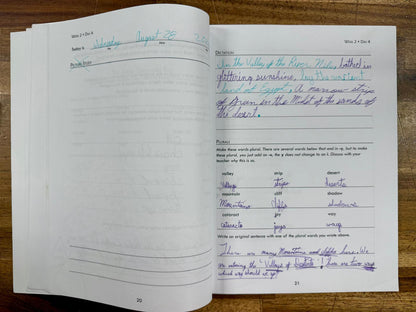 WEEK 2 • DAY 4
Today is Wednesday August 28
PICTURE STUDY
20
WEEK 2 • DAY 4
DICTATION
In the Valley of the River Nile, bathed in
glittering sunshine, lay the ancient
land of Egypt. A narrow strip
of Green in the Midst of the sands of
the desert.
PLURALS
Make these words plural. There are several words below that end in -y, but to make
these plural, you just add an -s, the y does not change to an i. Discuss with your
teacher why this is so.
valley strip desert
Valleys strips deserts
mountain cliff shadow
Mountains cliffs shadows
cataract joy way
Cataracts joys ways
Write an original sentence with one of the plural words you wrote above.
There are many Mountains and cliffs here. We
are the "Valleys of There are two ways
which way should it go?
21